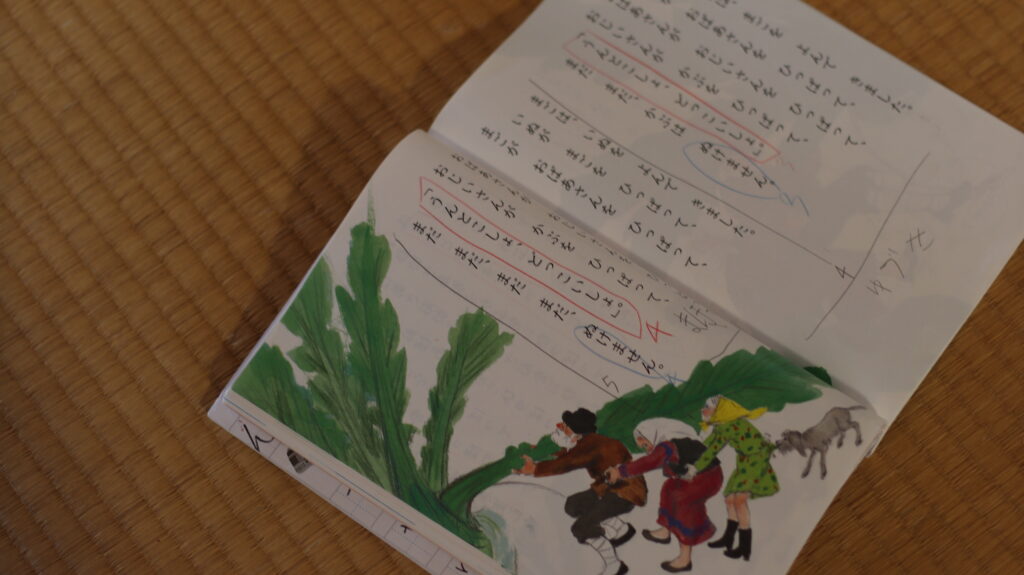 まごを よんで きました。
おばあさんを ひっぱって、
おばあさんが おじいさんを ひっぱって、
おじいさんが かぶを ひっぱって、
「うんとこしょ、どっこいしょ。」
まだ、まだ、かぶは ぬけません。
3
まごは いぬを よんで きました。
いぬが まごを ひっぱって、
まごが おばあさんを ひっぱって、
4
おばあさんが おじいさんを ひっぱって、
おじいさんが かぶを ひっぱって、
「うんとこしょ、どっこいしょ。」
4
まだ まだ、まだ まだ、ぬけません。
5